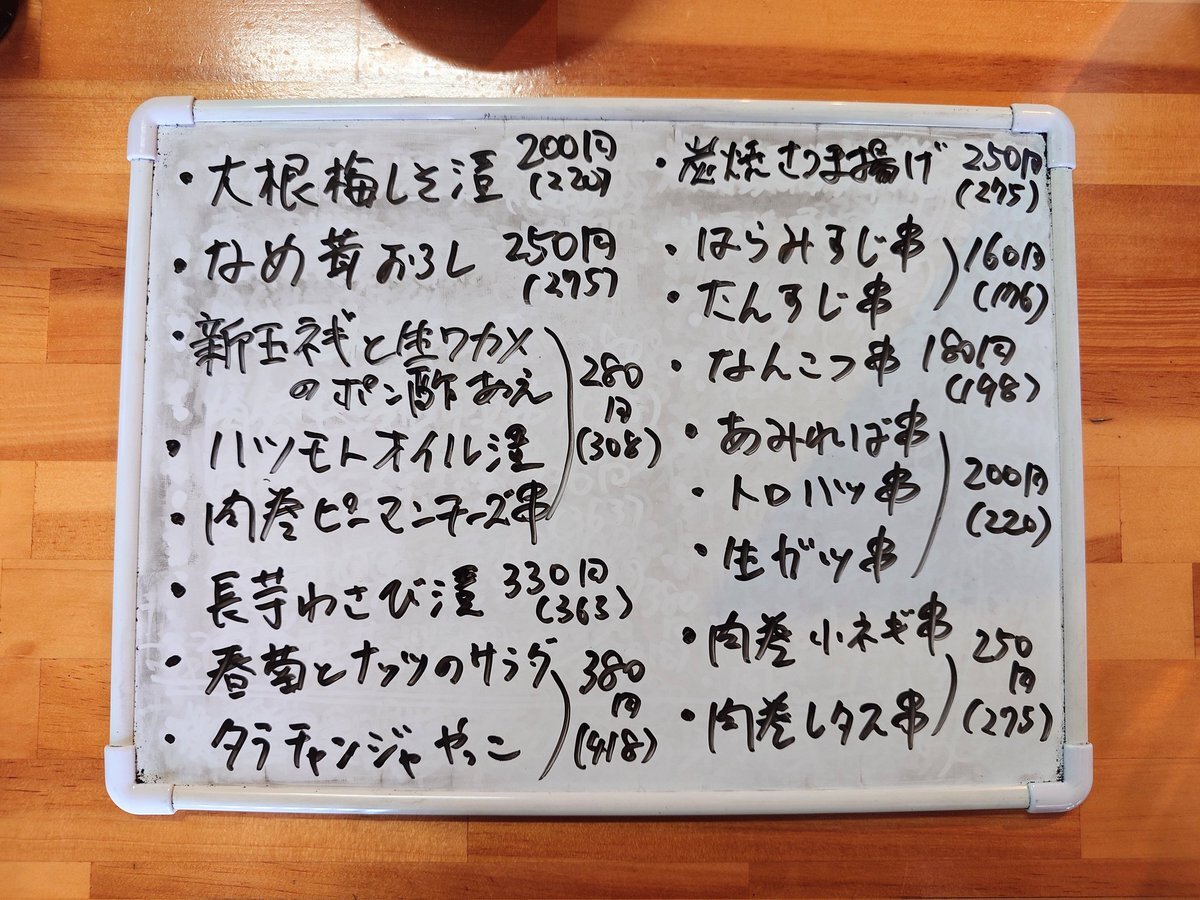 ・大根梅しそ漬 200円
(220)
・なめ茸おろし 250円
(275)
・新玉ネギと生ワカメ
のポン酢あえ
・ハツモトオイル漬
・肉巻ピーマンチーズ串
280
円
(308)
・長芋わさび漬 330円
(363)
・春菊とナッツのサラダ
・タラチャンジャやっこ
380
円
(418)
・炭焼さつま揚げ 250円
(275)
・はらみすじ串
・たんすじ串
160円
(176)
・なんこつ串 180円
(198)
・あみればー串
・トロハツ串
・生ガツ串
200円
(220)
・肉巻小ネギ串
・肉巻レタス串
250
円
(275)